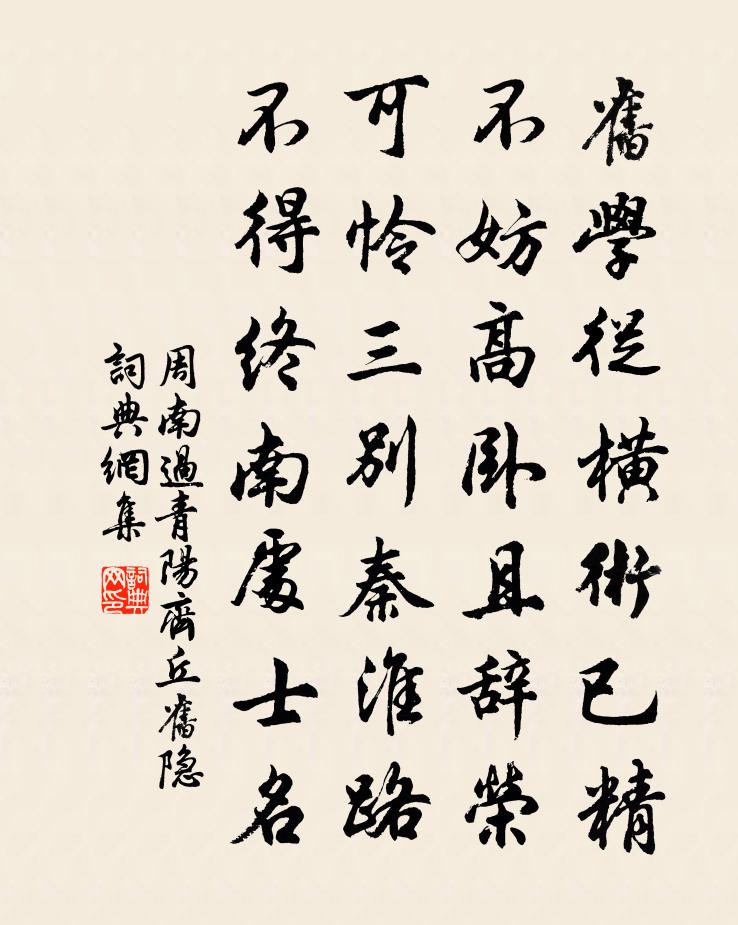 舊學從橫術已精
不妨高卧且辞榮
可怜三别秦淮路
不得终南處士名
周南過青陽齊丘舊隐
詞典網集
詞典网印